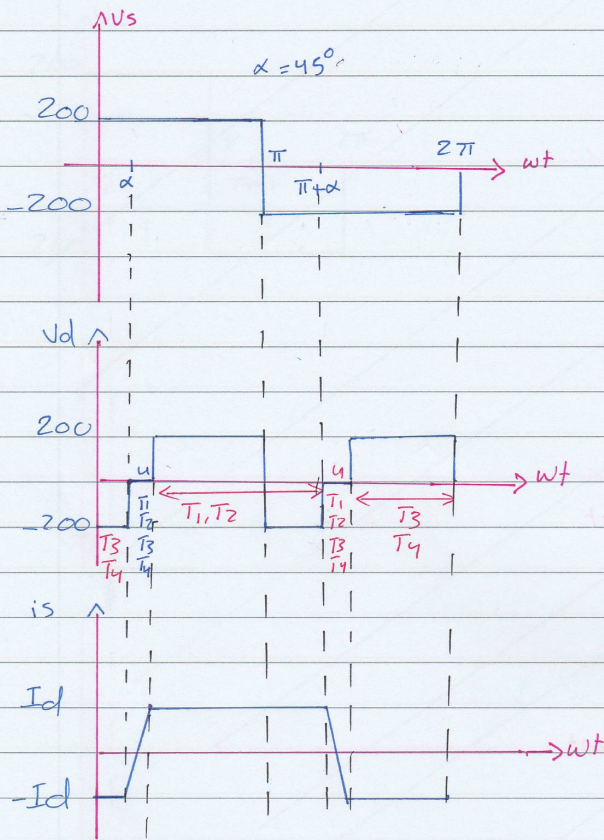 Vs
α = 45°
200
π
2π
wt
α
π+α
-200
Vd
200
u
u
wt
T1, T2
-200
T3
T4
T1
T2
T3
T4
T1
T2
T3
T4
T3
T4
is
Id
wt
-Id